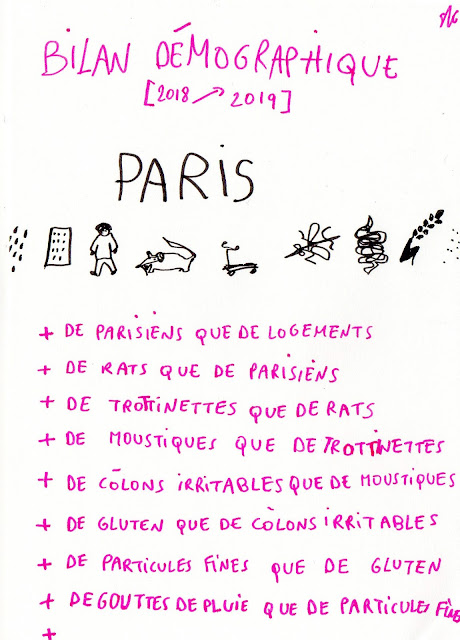 BILAN DÉMOGRAPHIQUE
[2018 → 2019]
PARIS
+ DE PARISIENS QUE DE LOGEMENTS
+ DE RATS QUE DE PARISIENS
+ DE TROTTINETTES QUE DE RATS
+ DE MOUSTIQUES QUE DE TROTTINETTES
+ DE CÔLONS IRRITABLES QUE DE MOUSTIQUES
+ DE GLUTEN QUE DE CÔLONS IRRITABLES
+ DE PARTICULES FINES QUE DE GLUTEN
+ DE GOUTTES DE PLUIE QUE DE PARTICULES FINES
+